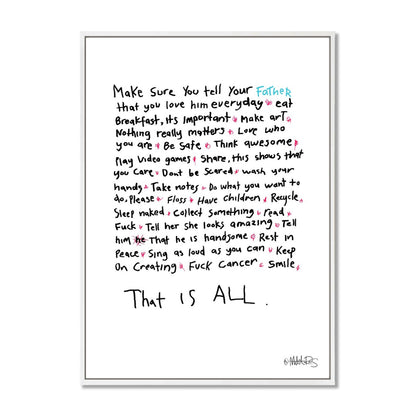 Make Sure You tell Your Father
that you love him everyday eat
Breakfast, its important make art
Nothing really matters Love who
you are Be Safe Think awesome
Play video games Share, this shows that
you care Dont be Scared wash your
hands Take notes Do what you want to
do, Please Floss Have Children Recycle
Sleep naked Collect something read
Fuck Tell her she looks amazing Tell
him he That he is handsome Rest in
Peace Sing as loud as you can Keep
On Creating Fuck Cancer Smile
That IS ALL.